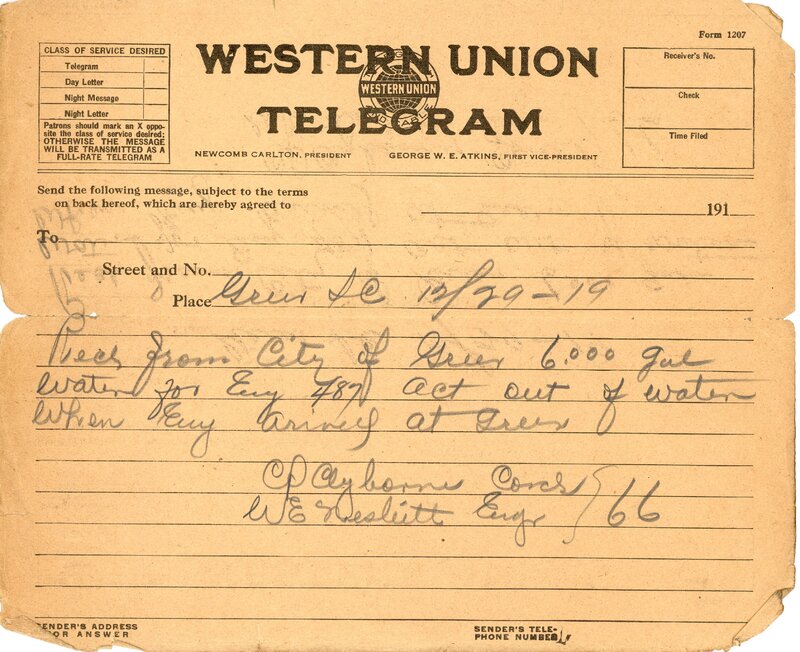 Form 1207
CLASS OF SERVICE DESIRED
Telegram
Day Letter
Night Message
Night Letter
Patrons should mark an X oppo-
site the class of service desired;
OTHERWISE THE MESSAGE
WILL BE TRANSMITTED AS A
FULL-RATE TELEGRAM
WESTERN UNION
WESTERN UNION
TELEGRAM
NEWCOMB CARLTON, PRESIDENT GEORGE W. E. ATKINS, FIRST VICE-PRESIDENT
Receiver's No.
Check
Time Filed
Send the following message, subject to the terms
on back hereof, which are hereby agreed to
191
To
Street and No.
Place Greer SC 12/29-19
Recd from City of Greer 6.000 gal
Water for Eng 487 act out of water
When Eng arrived at Greer
CD Clyborne Condr
WE Nesbitt Engr 66
SENDER'S ADDRESS
FOR ANSWER
SENDER'S TELE-
PHONE NUMBER